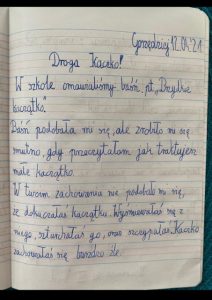 12.04.21
Droga Kaczko!
W szkole omawialiśmy baśń pt. „Brzydkie
kaczątko."
Baśń podobała mi się, ale zrobiło mi się
smutno, gdy przeczytałam jak traktujesz
małe kaczątko.
W twoim zachowaniu nie podobało mi się,
że dokuczałaś kaczątku. Wyśmiewałaś się z
niego, szturchałaś go, oraz szczypałaś. Kaczko
zachowałaś się bardzo źle.